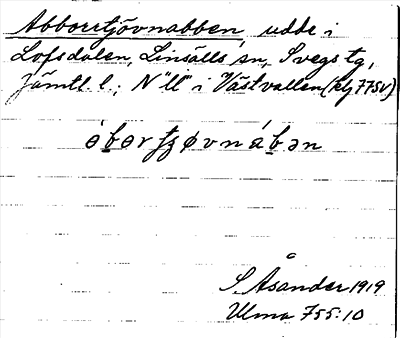 Abborrtjövnabben, udde i
Lofsdalen, Linsälls sn, Svegs tg,
Jämtl. l.; N "ll" i Västvallen (klj 775V)
S. Åsander 1919
Ulma 755:10